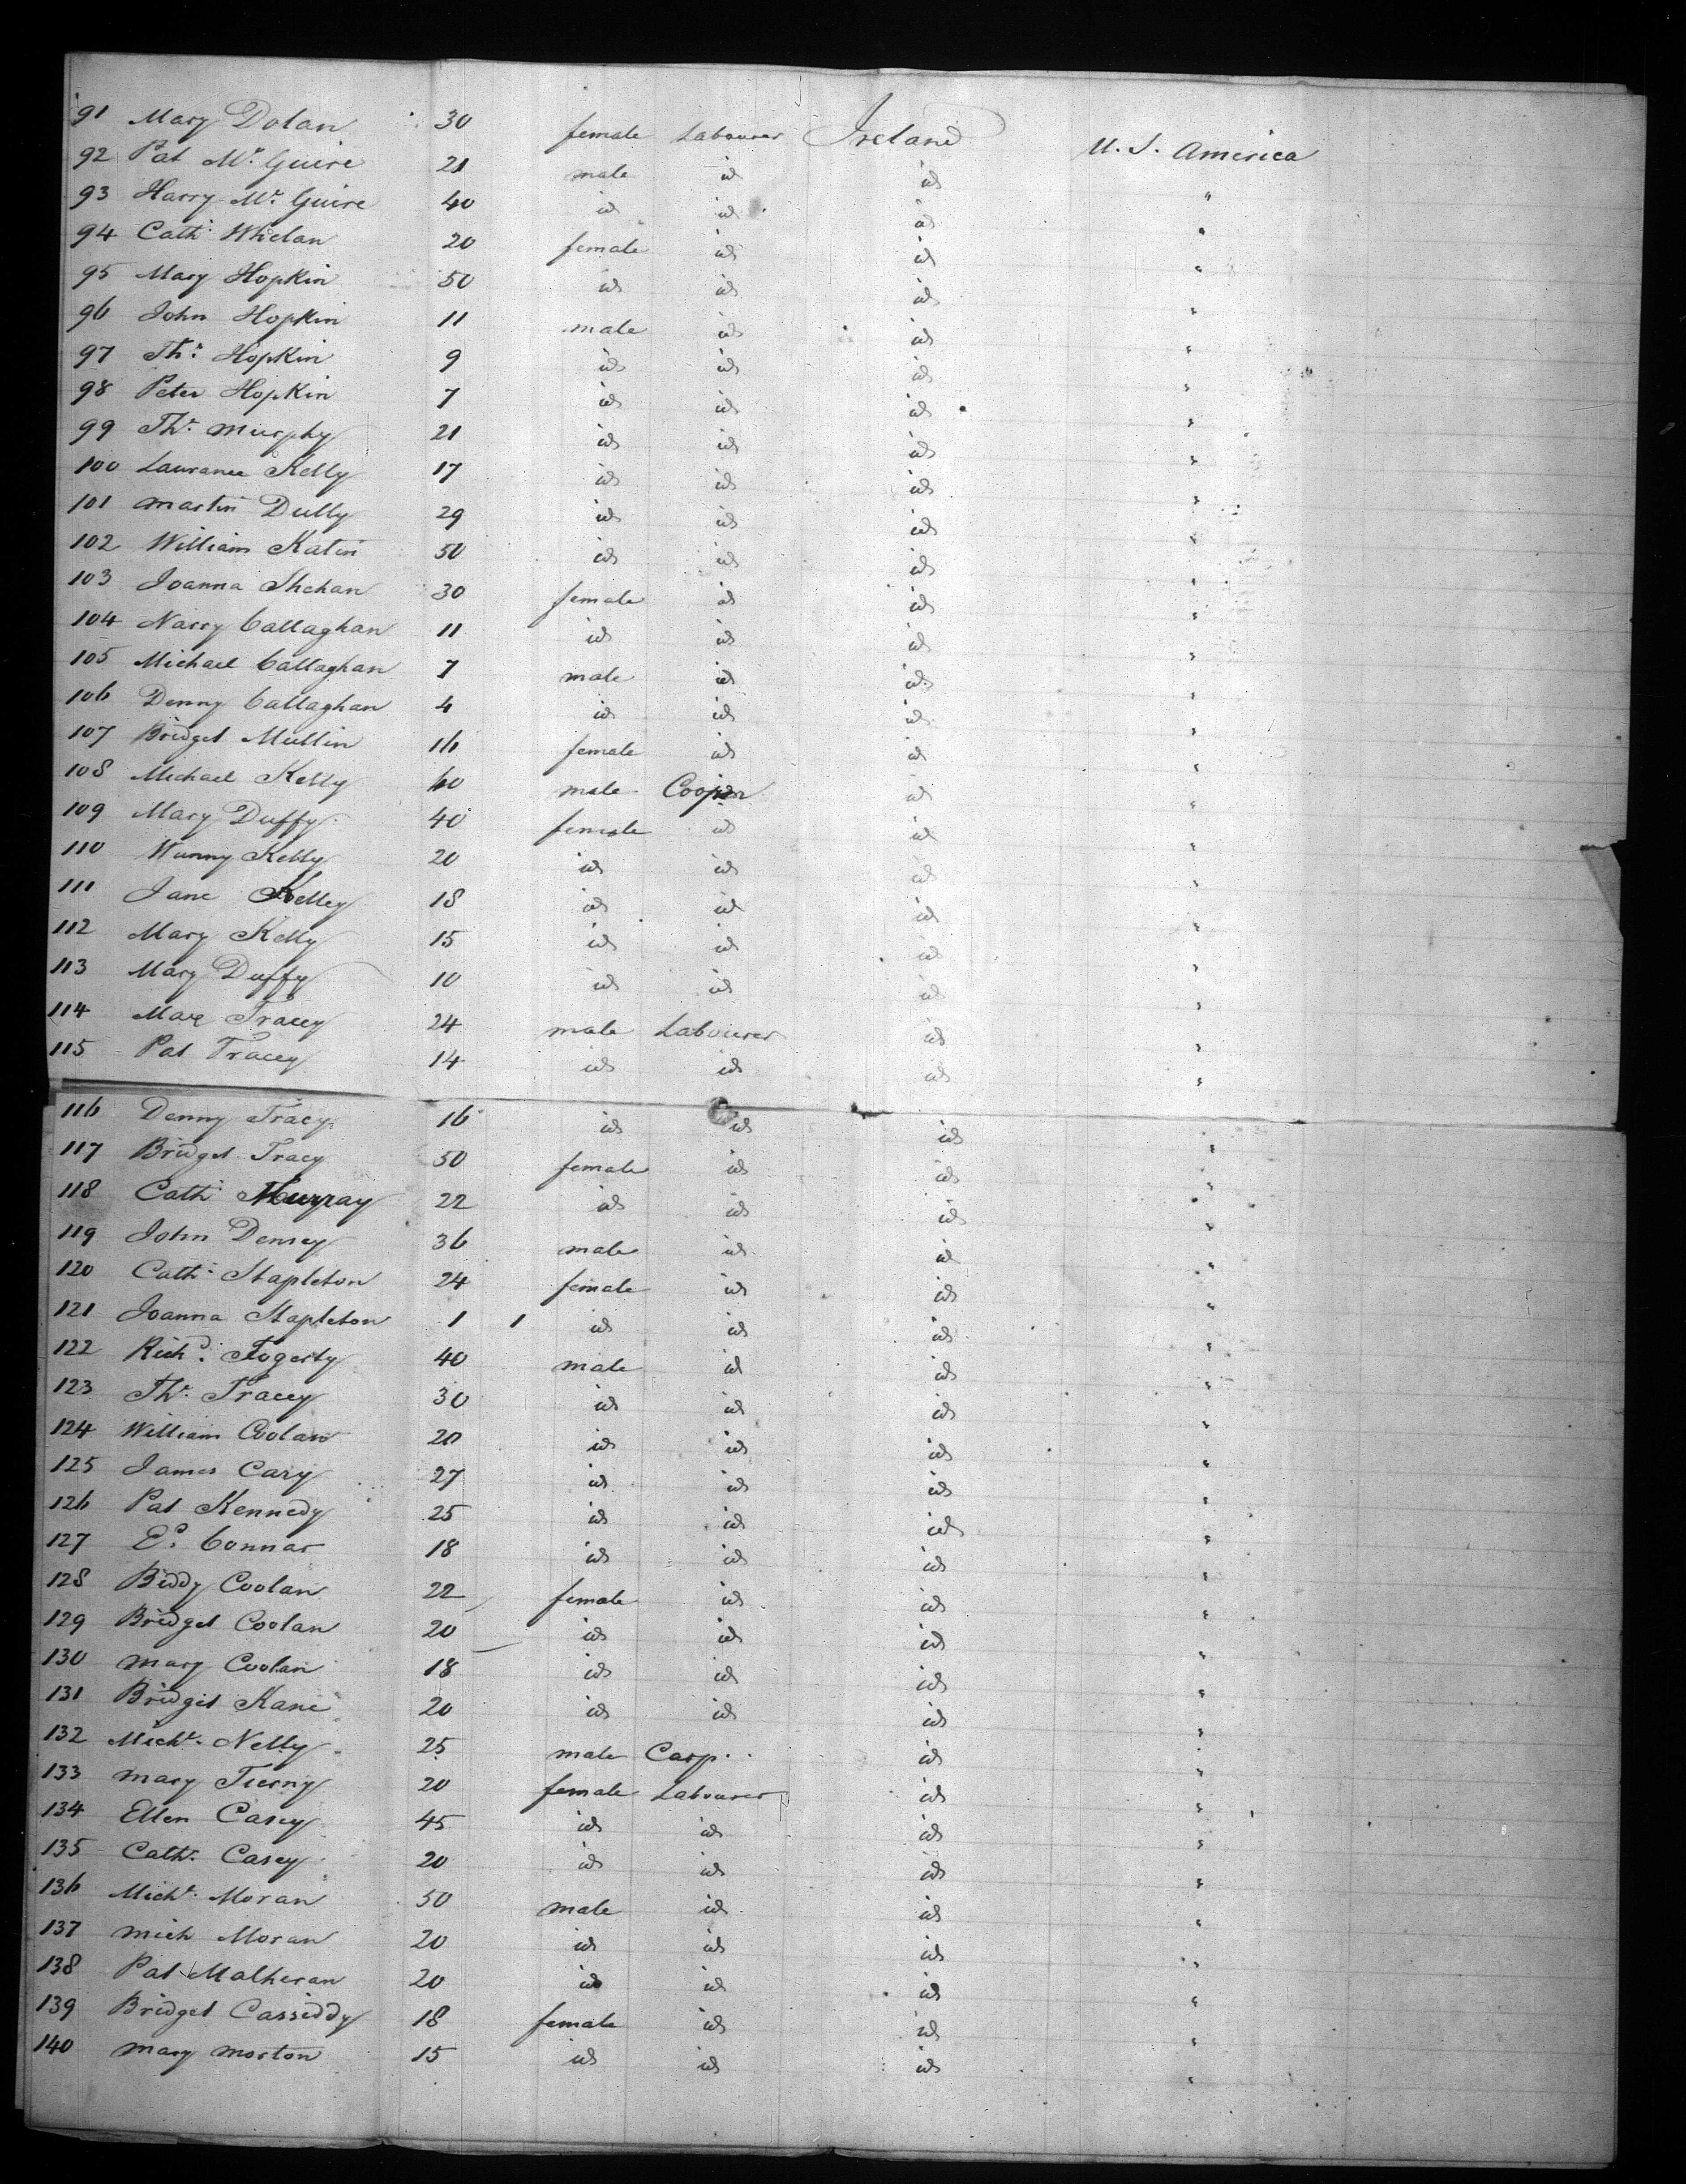 91 Mary Dolan 30 female Labourer Ireland U.S. America
92 Pat Mc. Guire 21 male id id "
93 Harry Mc. Guire 40 id id id "
94 Cath: Whelan 20 female id id "
95 Mary Hopkin 50 id id id "
96 John Hopkin 11 male id id "
97 Ths: Hopkin 9 id id id "
98 Peter Hopkin 7 id id id "
99 Ths. Murphy 21 id id id "
100 Laurance Kelly 17 id id id "
101 Martin Dully 29 id id id "
102 William Katin 50 id id id "
103 Joanna Shehan 30 female id id "
104 Narry Callaghan 11 id id id "
105 Michael Callaghan 7 male id id "
106 Denny Callaghan 4 id id id "
107 Bridget Mullin 16 female id id "
108 Michael Kelly 40 male Cooper id "
109 Mary Duffy 40 female id id "
110 Wunny Kelly 20 id id id "
111 Jane Kelley 18 id id id "
112 Mary Kelly 15 id id id "
113 Mary Duffy 10 id id id "
114 Tracey 24 male Labourer id "
115 Pat Tracey 14 id id id "
116 Denny Tracy 16 id id id "
117 Bridget Tracy 50 female id id "
118 Cath: Murray 22 id id id "
119 John Demsey 36 male id id "
120 Cath: Stapleton 24 female id id "
121 Joanna Stapleton 1 1 id id id "
122 Richd. Fogerty 40 male id id "
123 Ths. Tracey 30 id id id "
124 William Coolan 20 id id id "
125 James Cary 27 id id id "
126 Pat Kennedy 25 id id id "
127 Ed. Connar 18 id id id "
128 Biddy Coolan 22 female id id "
129 Bridget Coolan 20 id id id "
130 Mary Coolan 18 id id id "
131 Bridget Kane 20 id id id "
132 Michl. Nelly 25 male Carp.. id "
133 Mary Tierny 20 female Labourer id "
134 Ellen Casey 45 id id id "
135 Cath. Casey 20 id id id "
136 Michl. Moran 50 male id id "
137 Mich Moran 20 id id id "
138 Pat Matheran 20 id id id "
139 Bridget Cassiddy 18 female id id "
140 Mary Morton 15 id id id "